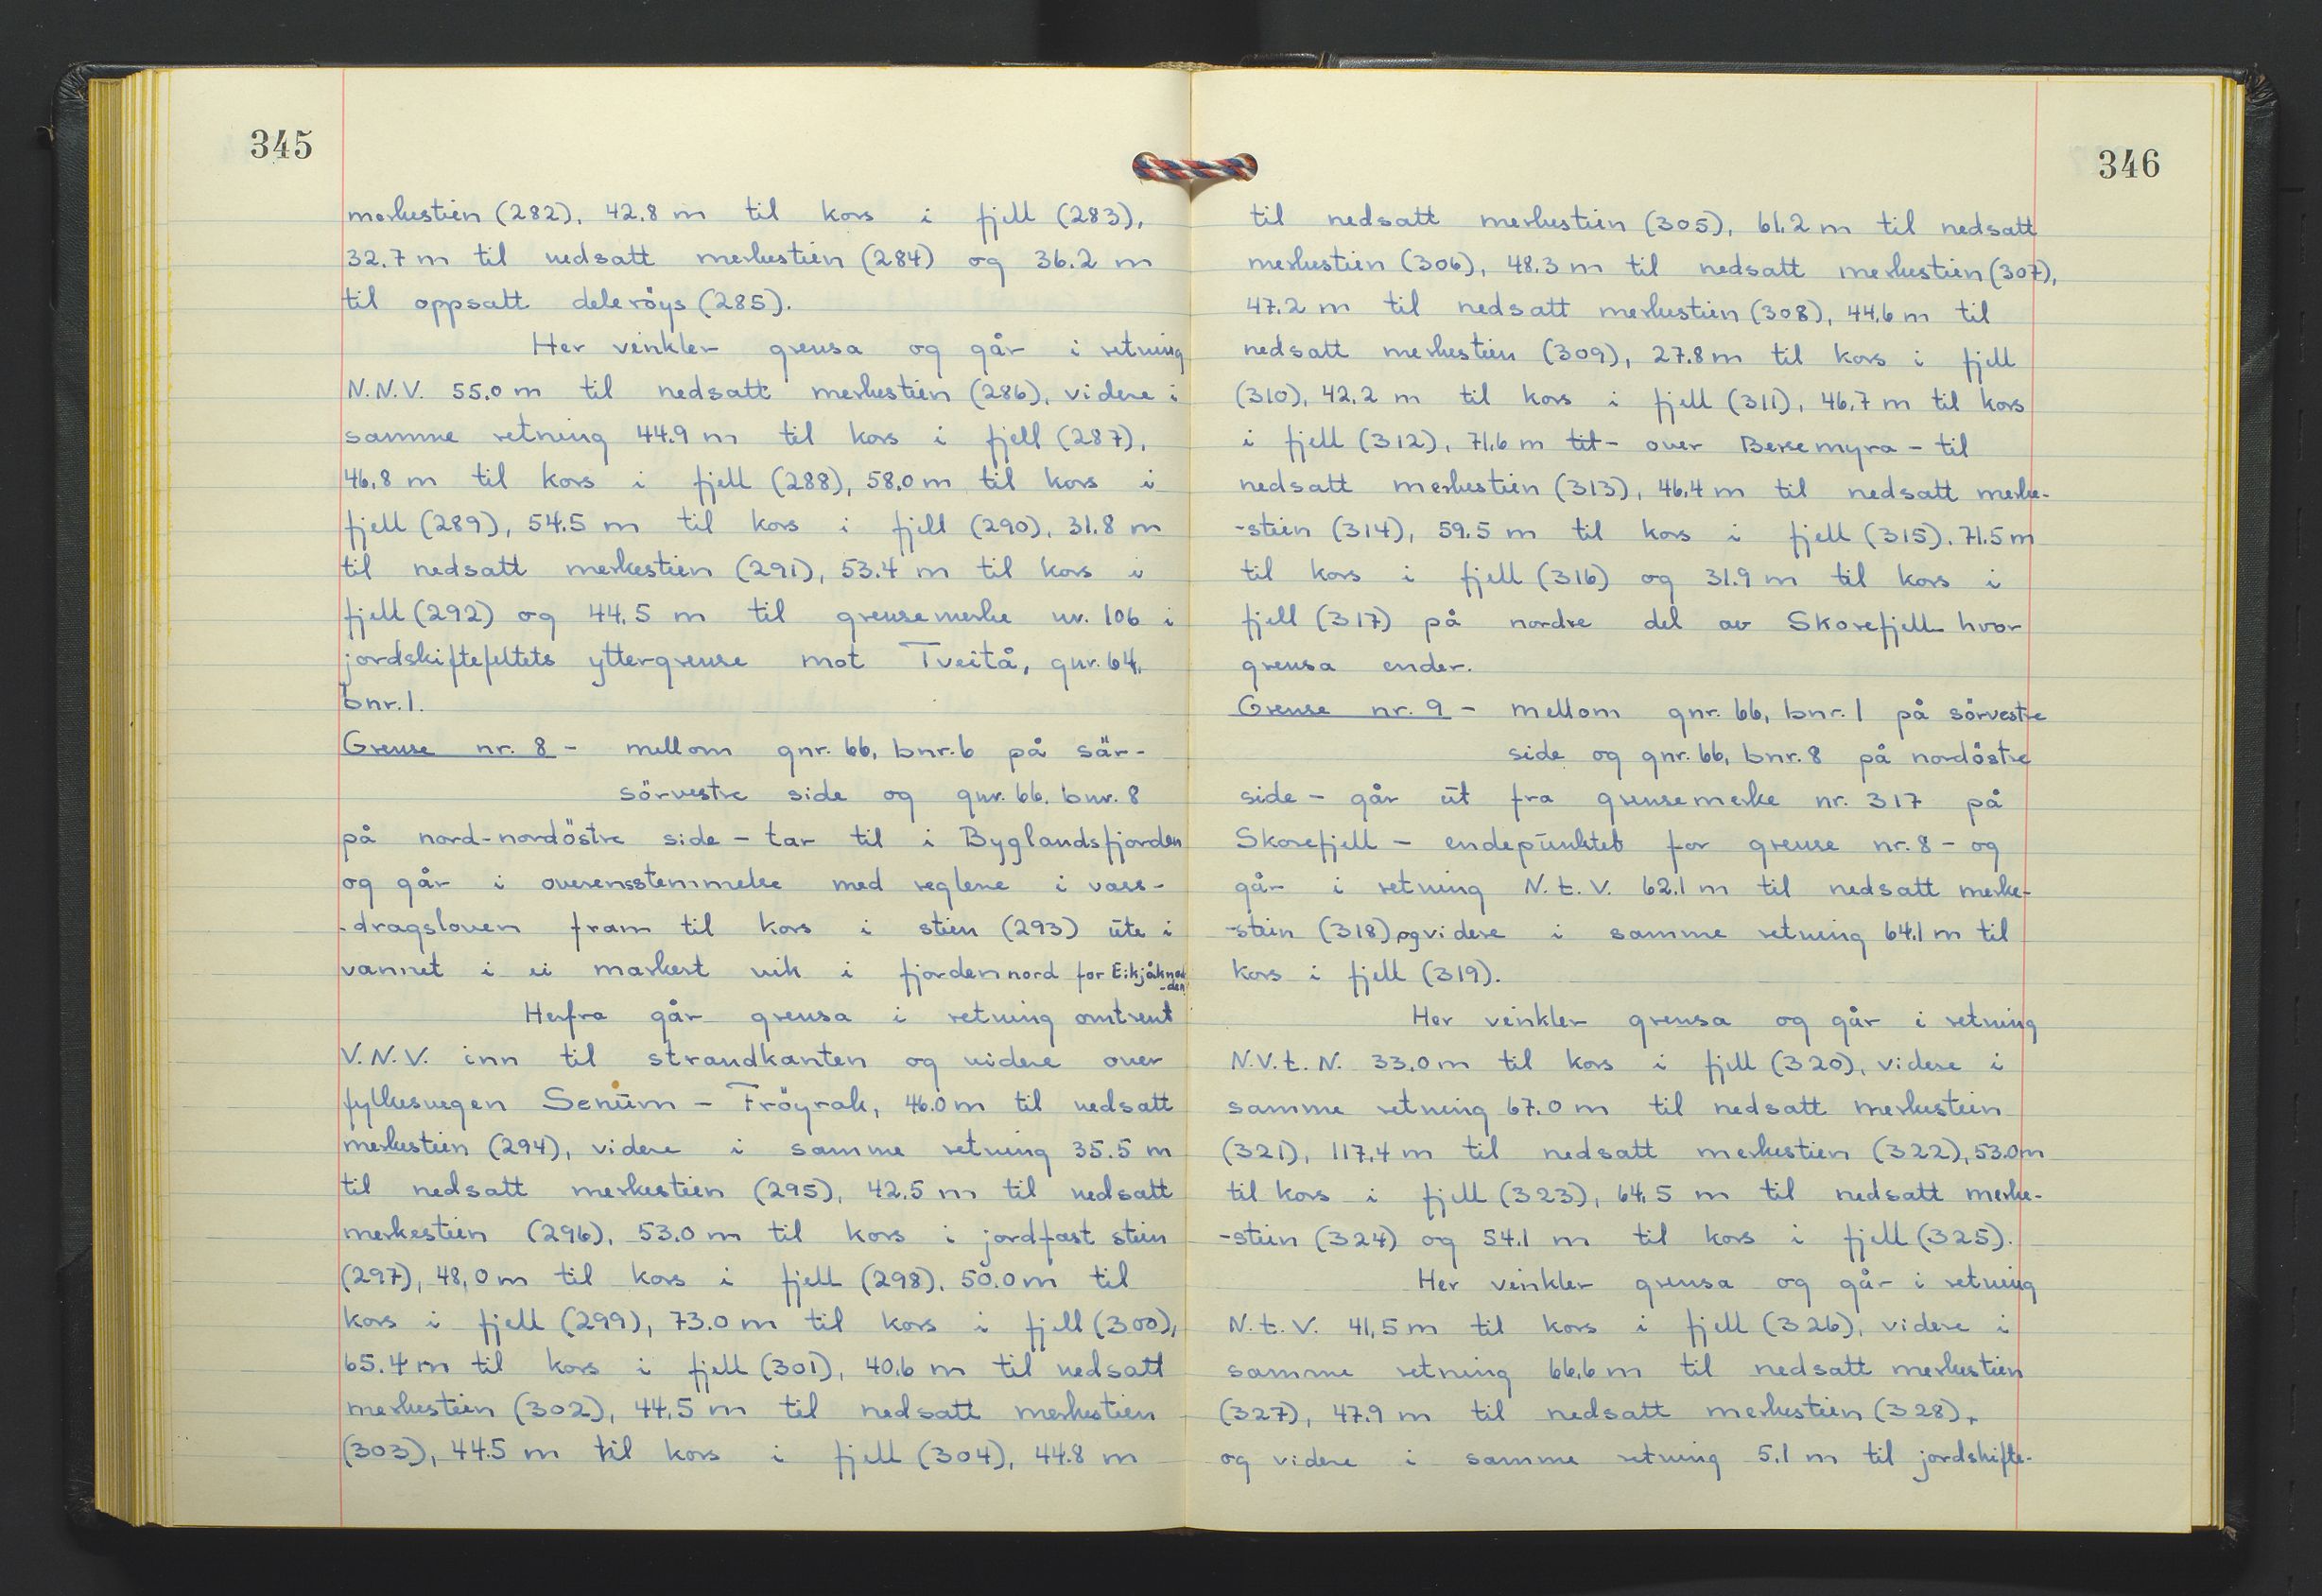 345
merkestein (282), 42.8 m til kors i fjell (283),
32.7 m til nedsatt merkestein (284) og 36.2 m
til oppsatt deleröys (285).
Her veinkler grensa og går i retning
N.N.V. 55.0 m til nedsatt merkestein (286), videre i
samme retning 44.9 m til kors i fjell (287),
46.8 m til kors i fjell (288), 58.0 m til kors i
fjell (289), 54.5 m til kors i fjell (290), 31.8 m
til nedsatt merkestein (291), 53.4 m til kors i
fjell (292) og 44.5 m til grensemerke nr. 106 i
jordskiftefeltets yttergrense mot Tveitå, gnr. 64,
bnr. 1.
Grense nr. 8 - mellom gnr. 66, bnr. 6 på sär-
sörvestre side og gnr. 66. bnr. 8
på nord-nordöstre side - tar til i Byglandsfjorden
og går i overensstemmelse med reglene i vass-
-dragsloven fram til kors i stein (293) ute i
vannet i ei markert vik i fjorden nord for Eikjåknod
-den
Herfra går grensa i retning omtrent
V.N.V. inn til strandkanten og videre over
fylkesvegen Senum - Fröyrak, 46.0 m til nedsatt
merkestein (294), videre i samme retning 35.5 m
til nedsatt merkestein (295), 42.5 m til nedsatt
merkestein (296), 53.0 m til kors i jordfast stein
(297), 48,0 m til kors i fjell (298), 50.0 m til
kors i fjell (299), 73.0 m til kors i fjell (300),
65.4 m til kors i fjell (301), 40.6 m til nedsatt
merkestein (302), 44.5 m til nedsatt merkestein
(303), 44.5 m til kors i fjell (304), 44.8 m
346
til nedsatt merkestein (305), 61.2 m til nedsatt
merkestein (306), 48.3 m til nedsatt merkestein (307),
47.2 m til nedsatt merkestein (308), 44.6 m til
nedsatt merkestein (309), 27.8 m til kors i fjell
(310), 42.2 m til kors i fjell (311), 46.7 m til kors
i fjell (312), 71.6 m til - over Bersemyra - til
nedsatt merkestein (313), 46.4 m til nedsatt merke-
-stein (314), 59.5 m til kors i fjell (315), 71.5 m
til kors i fjell (316) og 31.9 m til kors i
fjell (317) på nordre del av Skorefjell hvor
grensa ender.
Grense nr. 9 - mellom gnr. 66, bnr. 1 på sörvestre
side og gnr. 66, bnr. 8 på nordöstre
side - går ut fra grensemerke nr. 317 på
Skorefjell - endepunktet for grense nr. 8 - og
går i retning N.t.V. 62.1 m til nedsatt merke-
-stein (318) og videre i samme retning 64.1 m til
kors i fjell (319).
Her veinkler grensa og går i retning
N.V.t.N. 33.0 m til kors i fjell (320), videre i
samme retning 67.0 m til nedsatt merkestein
(321), 117.4 m til nedsatt merkestein (322), 53.0 m
til kors i fjell (323), 64.5 m til nedsatt merke-
-stein (324) og 54.1 m til kors i fjell (325).
Her veinkler grensa og går i retning
N.t.V. 41,5 m til kors i fjell (326), videre i
samme retning 66.6 m til nedsatt merkestein
(327), 47.9 m til nedsatt merkestein (328),
og videre i samme retning 5.1 m til jordskifte-